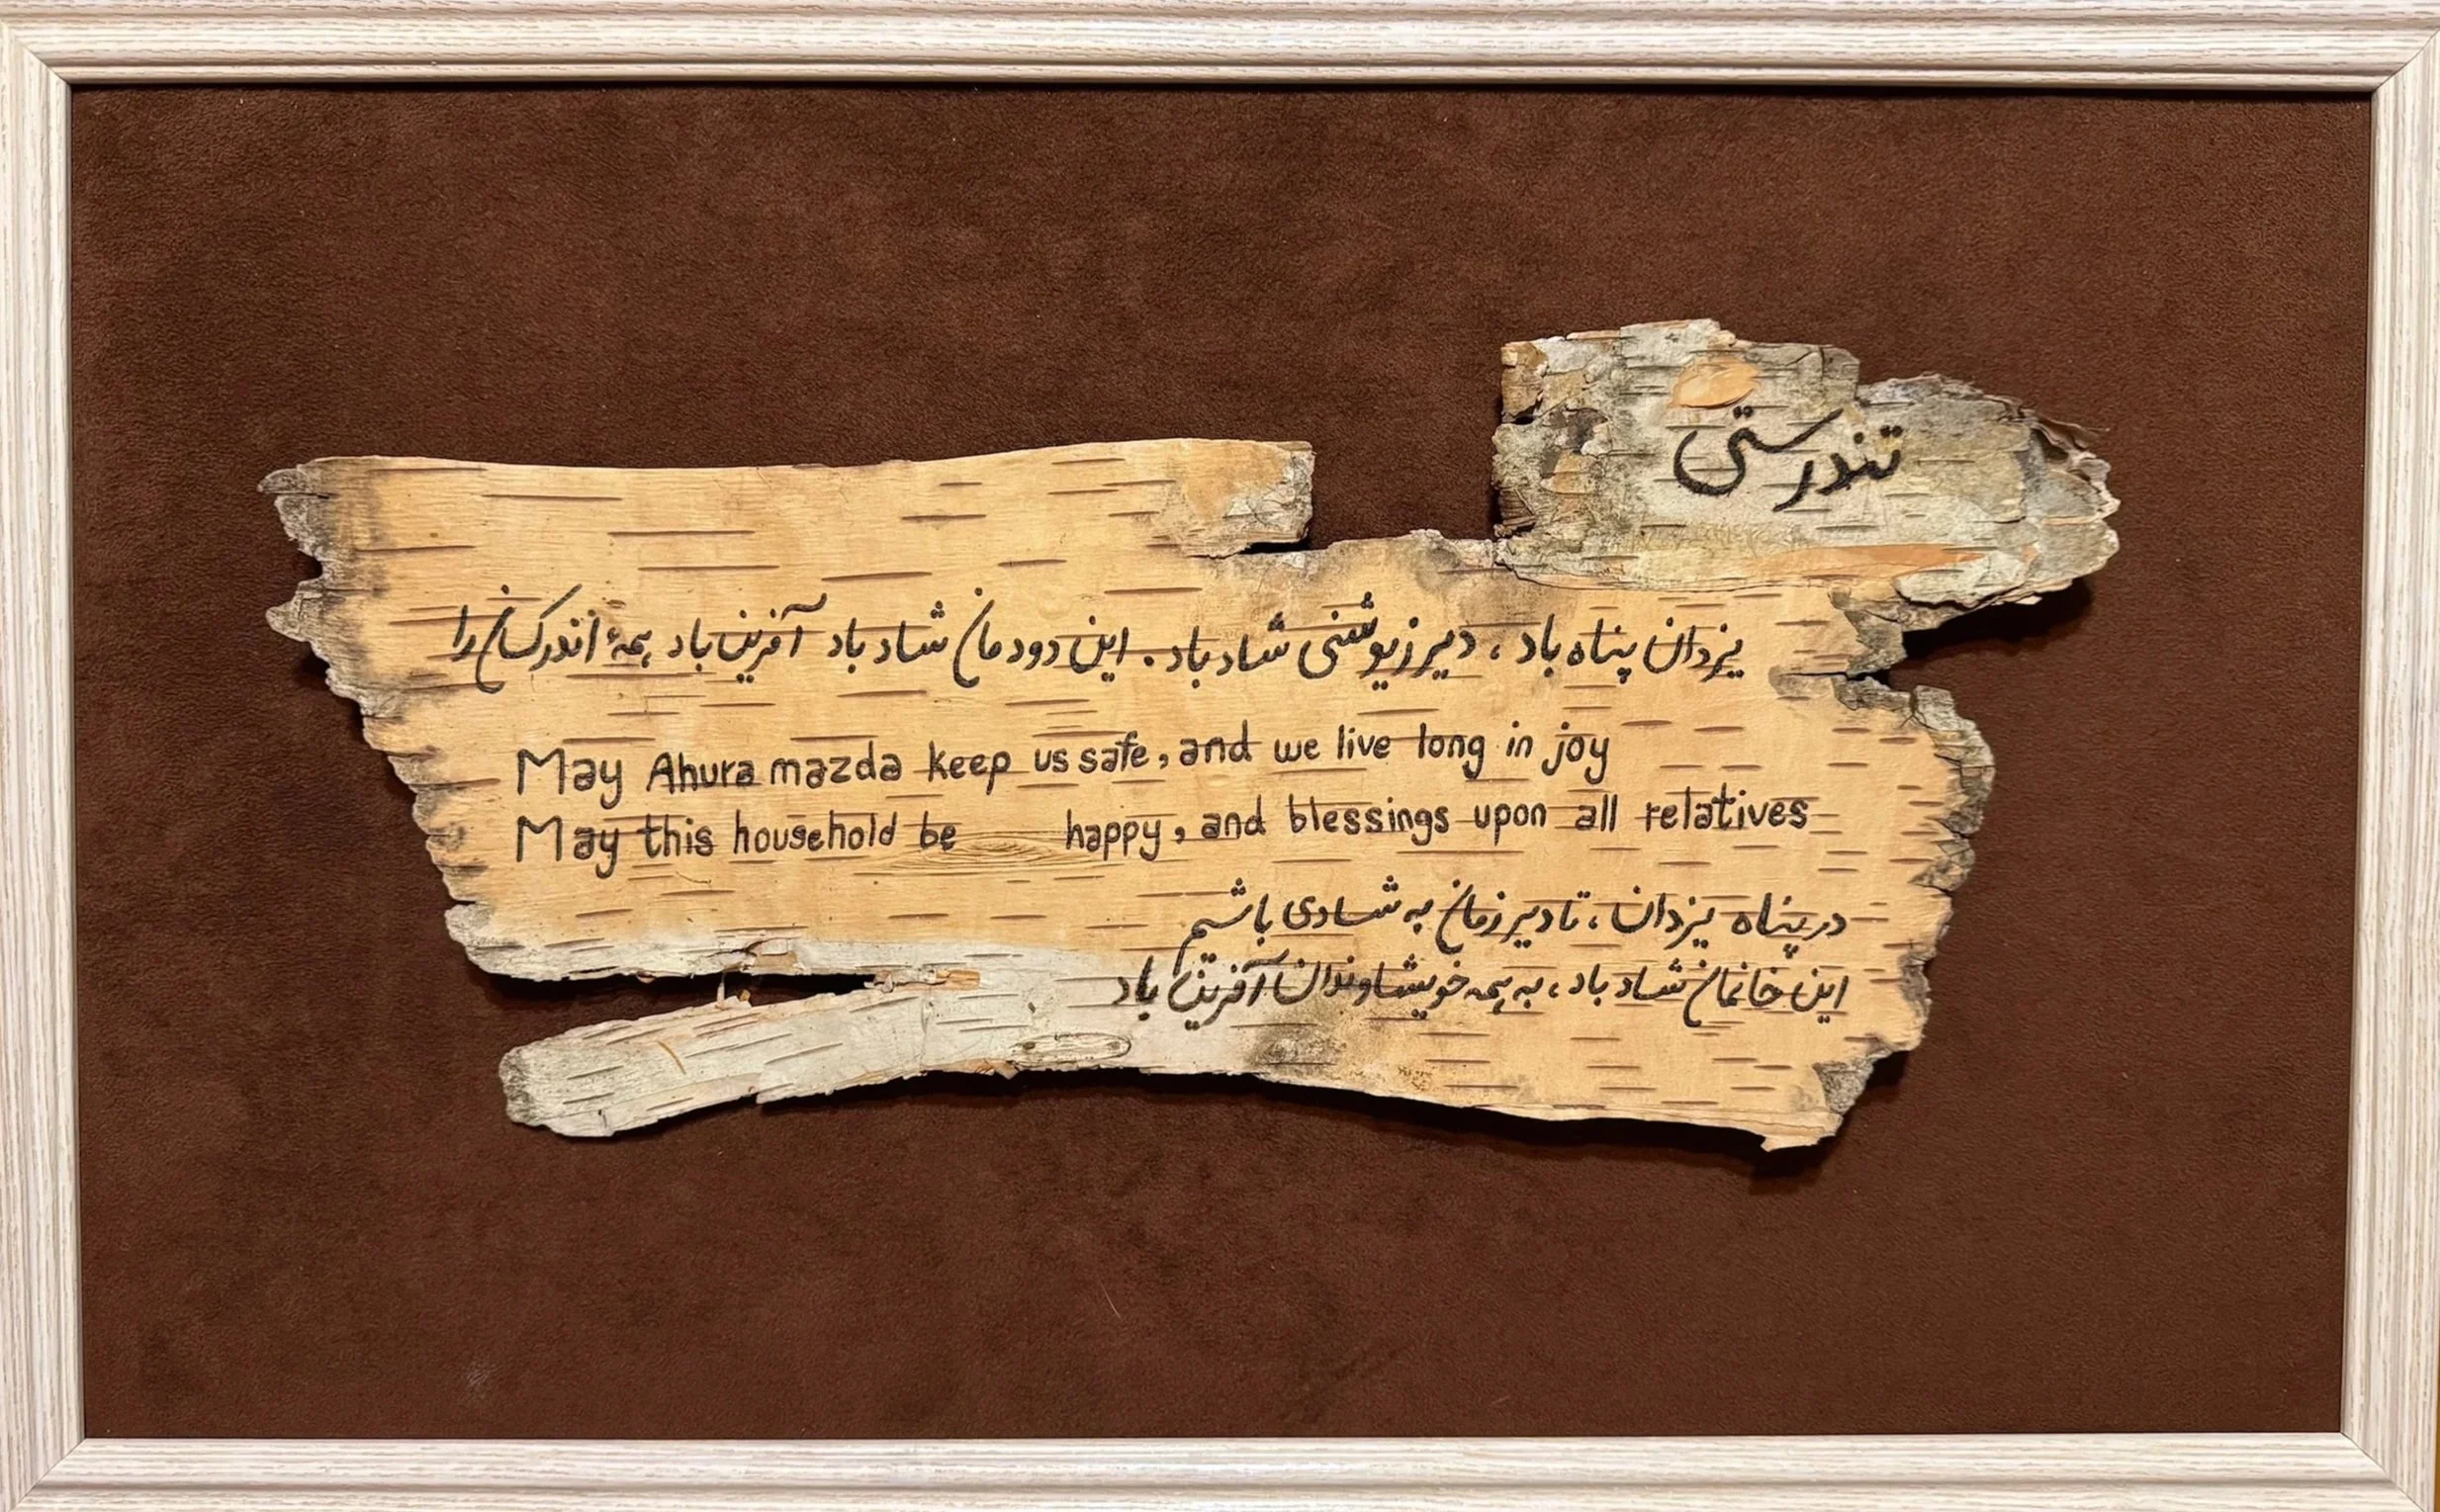 تندرستی
یزدان پناه باد، دیرزیوشنی شاد باد. این دودمان شاد باد آفرین باد همهٔ اندرکسان را
May Ahura mazda keep us safe, and we live long in joy
May this household be happy, and blessings upon all relatives
در پناه یزدان، تا دیر زمان به شادی باشیم
این خانمان شاد باد، به همه خویشاوندان آفرین باد